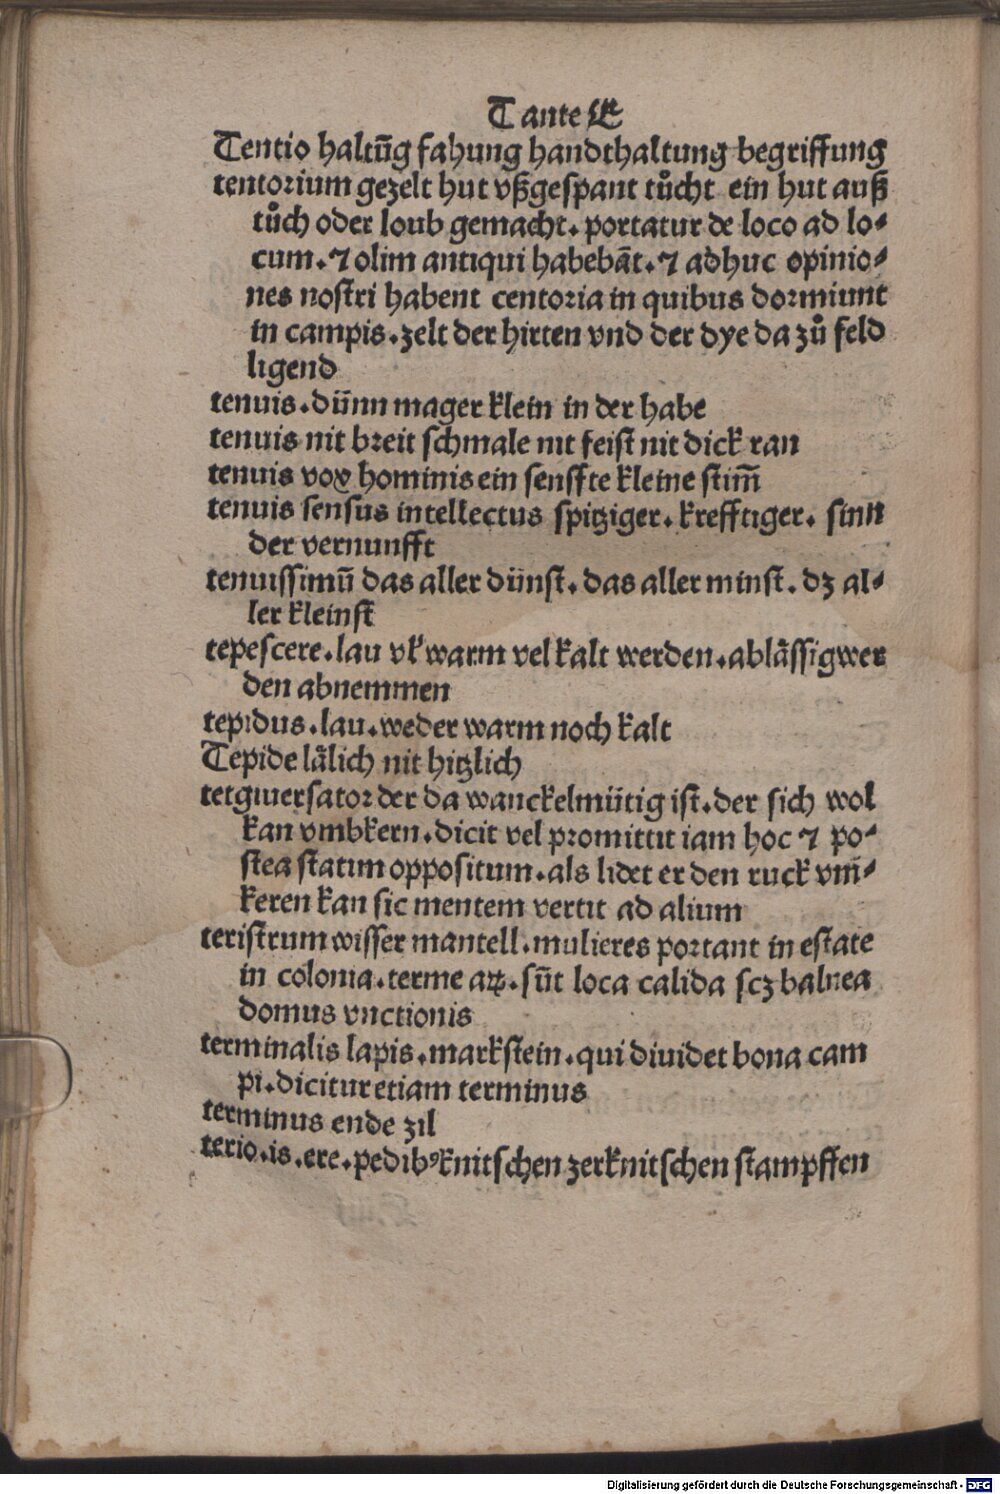 T ante E
Tentio haltūg fahung handthaltung begriffung
tentorium gezelt hut vßgespant tůcht ein hut auß
tůch oder loub gemacht. portatur de loco ad lo-
cum. ⁊ olim antiqui habebāt. ⁊ adhuc opinio-
nes nostri habent centoria in quibus dormiunt
in campis. zelt der hirten vnd der dye da zů feld
ligend
tenuis. dünn mager klein in der habe
tenuis nit breit schmale nit feist nit dick ran
tenuis vox hominis ein senffte kleine stim̄
tenuis sensus intellectus spitziger. krefftiger. sinn
der vernunfft
tenuissimū das aller dünst. das aller minst. dz al-
ler kleinst
tepescere. lau vk warm vel kalt werden. ablāssig wer
den abnemmen
tepidus. lau. weder warm noch kalt
Tepide lālich nit hitzlich
tetgiuersator der da wanckelmütig ist. der sich wol
kan vmbkern. dicit vel promittit iam hoc ⁊ po-
stea statim oppositum. als lidet er den ruck vm̄-
keren kan sic mentem vertit ad alium
teristrum wisser mantell. mulieres portant in estate
in colonia. terme aꝝ. sūt loca calida scz balnea
domus vnctionis
terminalis lapis. markstein. qui diuidet bona cam
pi. dicitur etiam terminus
terminus ende zil
terio. is. ere. pedibꝰ knitschen zerknitschen stampffen
Digitalisierung gefördert durch die Deutsche Forschungsgemeinschaft - DFG